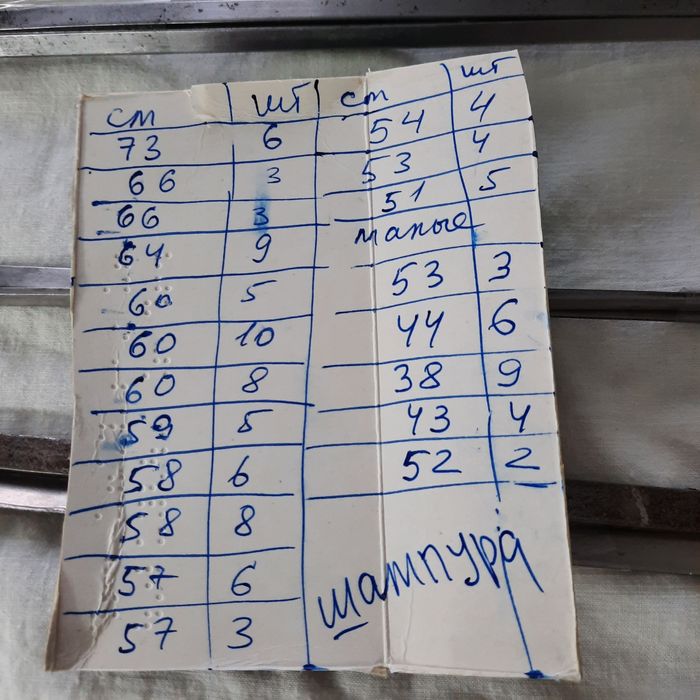 см шт
73 6
66 3
66 3
64 9
60 5
60 10
60 8
59 5
58 6
58 8
57 6
57 3
см шт
54 4
53 4
51 5
малые
53 3
44 6
38 9
43 4
52 2
шампура